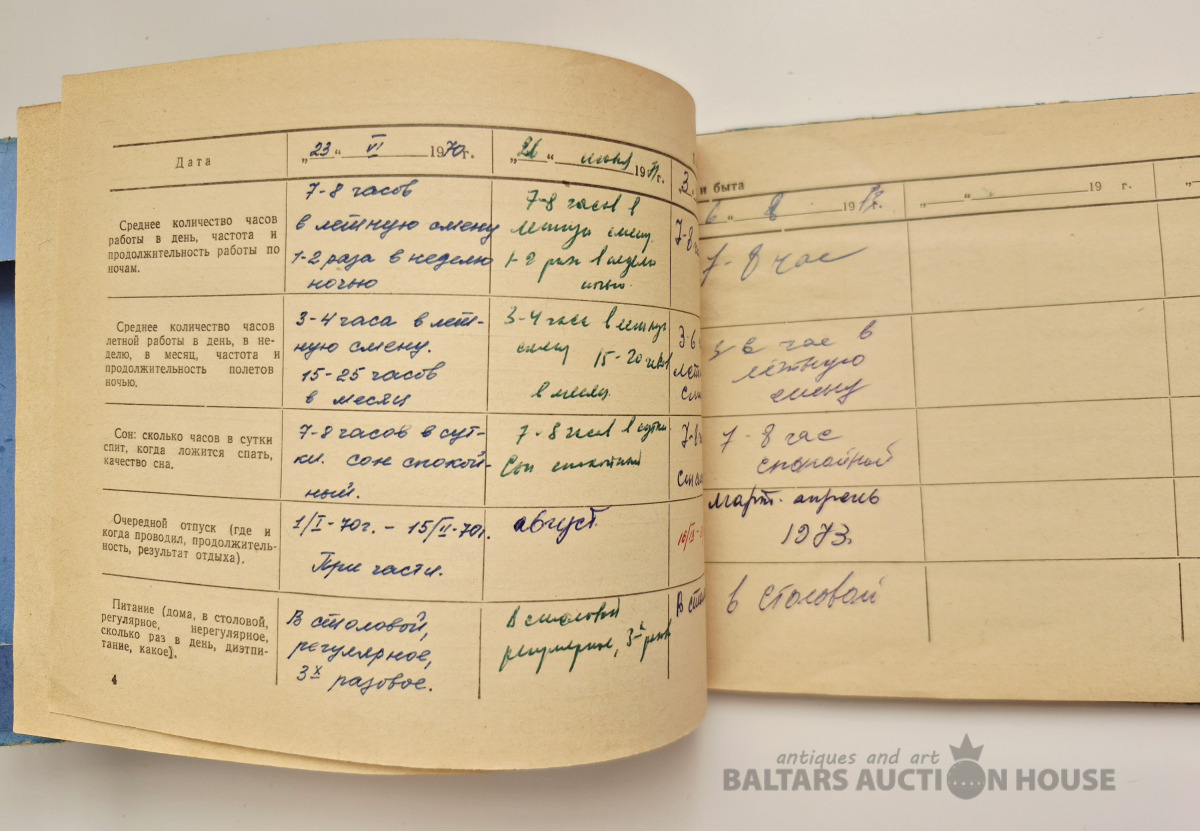 Дата
„23“ VI 1970г.
„26“ июня 1971г.
Среднее количество часов
работы в день, частота и
продолжительность работы по
ночам.
7-8 часов
в летную смену
1-2 раза в неделю
ночью
7-8 часов в
летную смену.
1-2 раза в неделю
ночью.
Среднее количество часов
летной работы в день, в не-
делю, в месяц, частота и
продолжительность полетов
ночью.
3-4 часа в лет-
ную смену.
15-25 часов
в месяц
3-4 часа в летную
смену 15-20 часов
в месяц.
Сон: сколько часов в сутки
спит, когда ложится спать,
качество сна.
7-8 часов в сут-
ки. сон спокой-
ный.
7-8 часов в сутки.
Сон спокойный
Очередной отпуск (где и
когда проводил, продолжитель-
ность, результат отдыха).
1/I-70г. – 15/II-70г.
При части.
август.
Питание (дома, в столовой,
регулярное, нерегулярное,
сколько раз в день, диэтпи-
тание, какое).
В столовой,
регулярное,
3х разовое.
В столовой
регулярное, 3-х разов
4
3
7-8
3-6
7-8
16/IX-
В стол
и быта
6 „ 8 19
„ “ 19 г.
7-8 час
час в
лётную
смену
7-8 час
спокойной
Март. апрель
1973.
в столовой
antiques and art
BALTARS AUCTION HOUSE